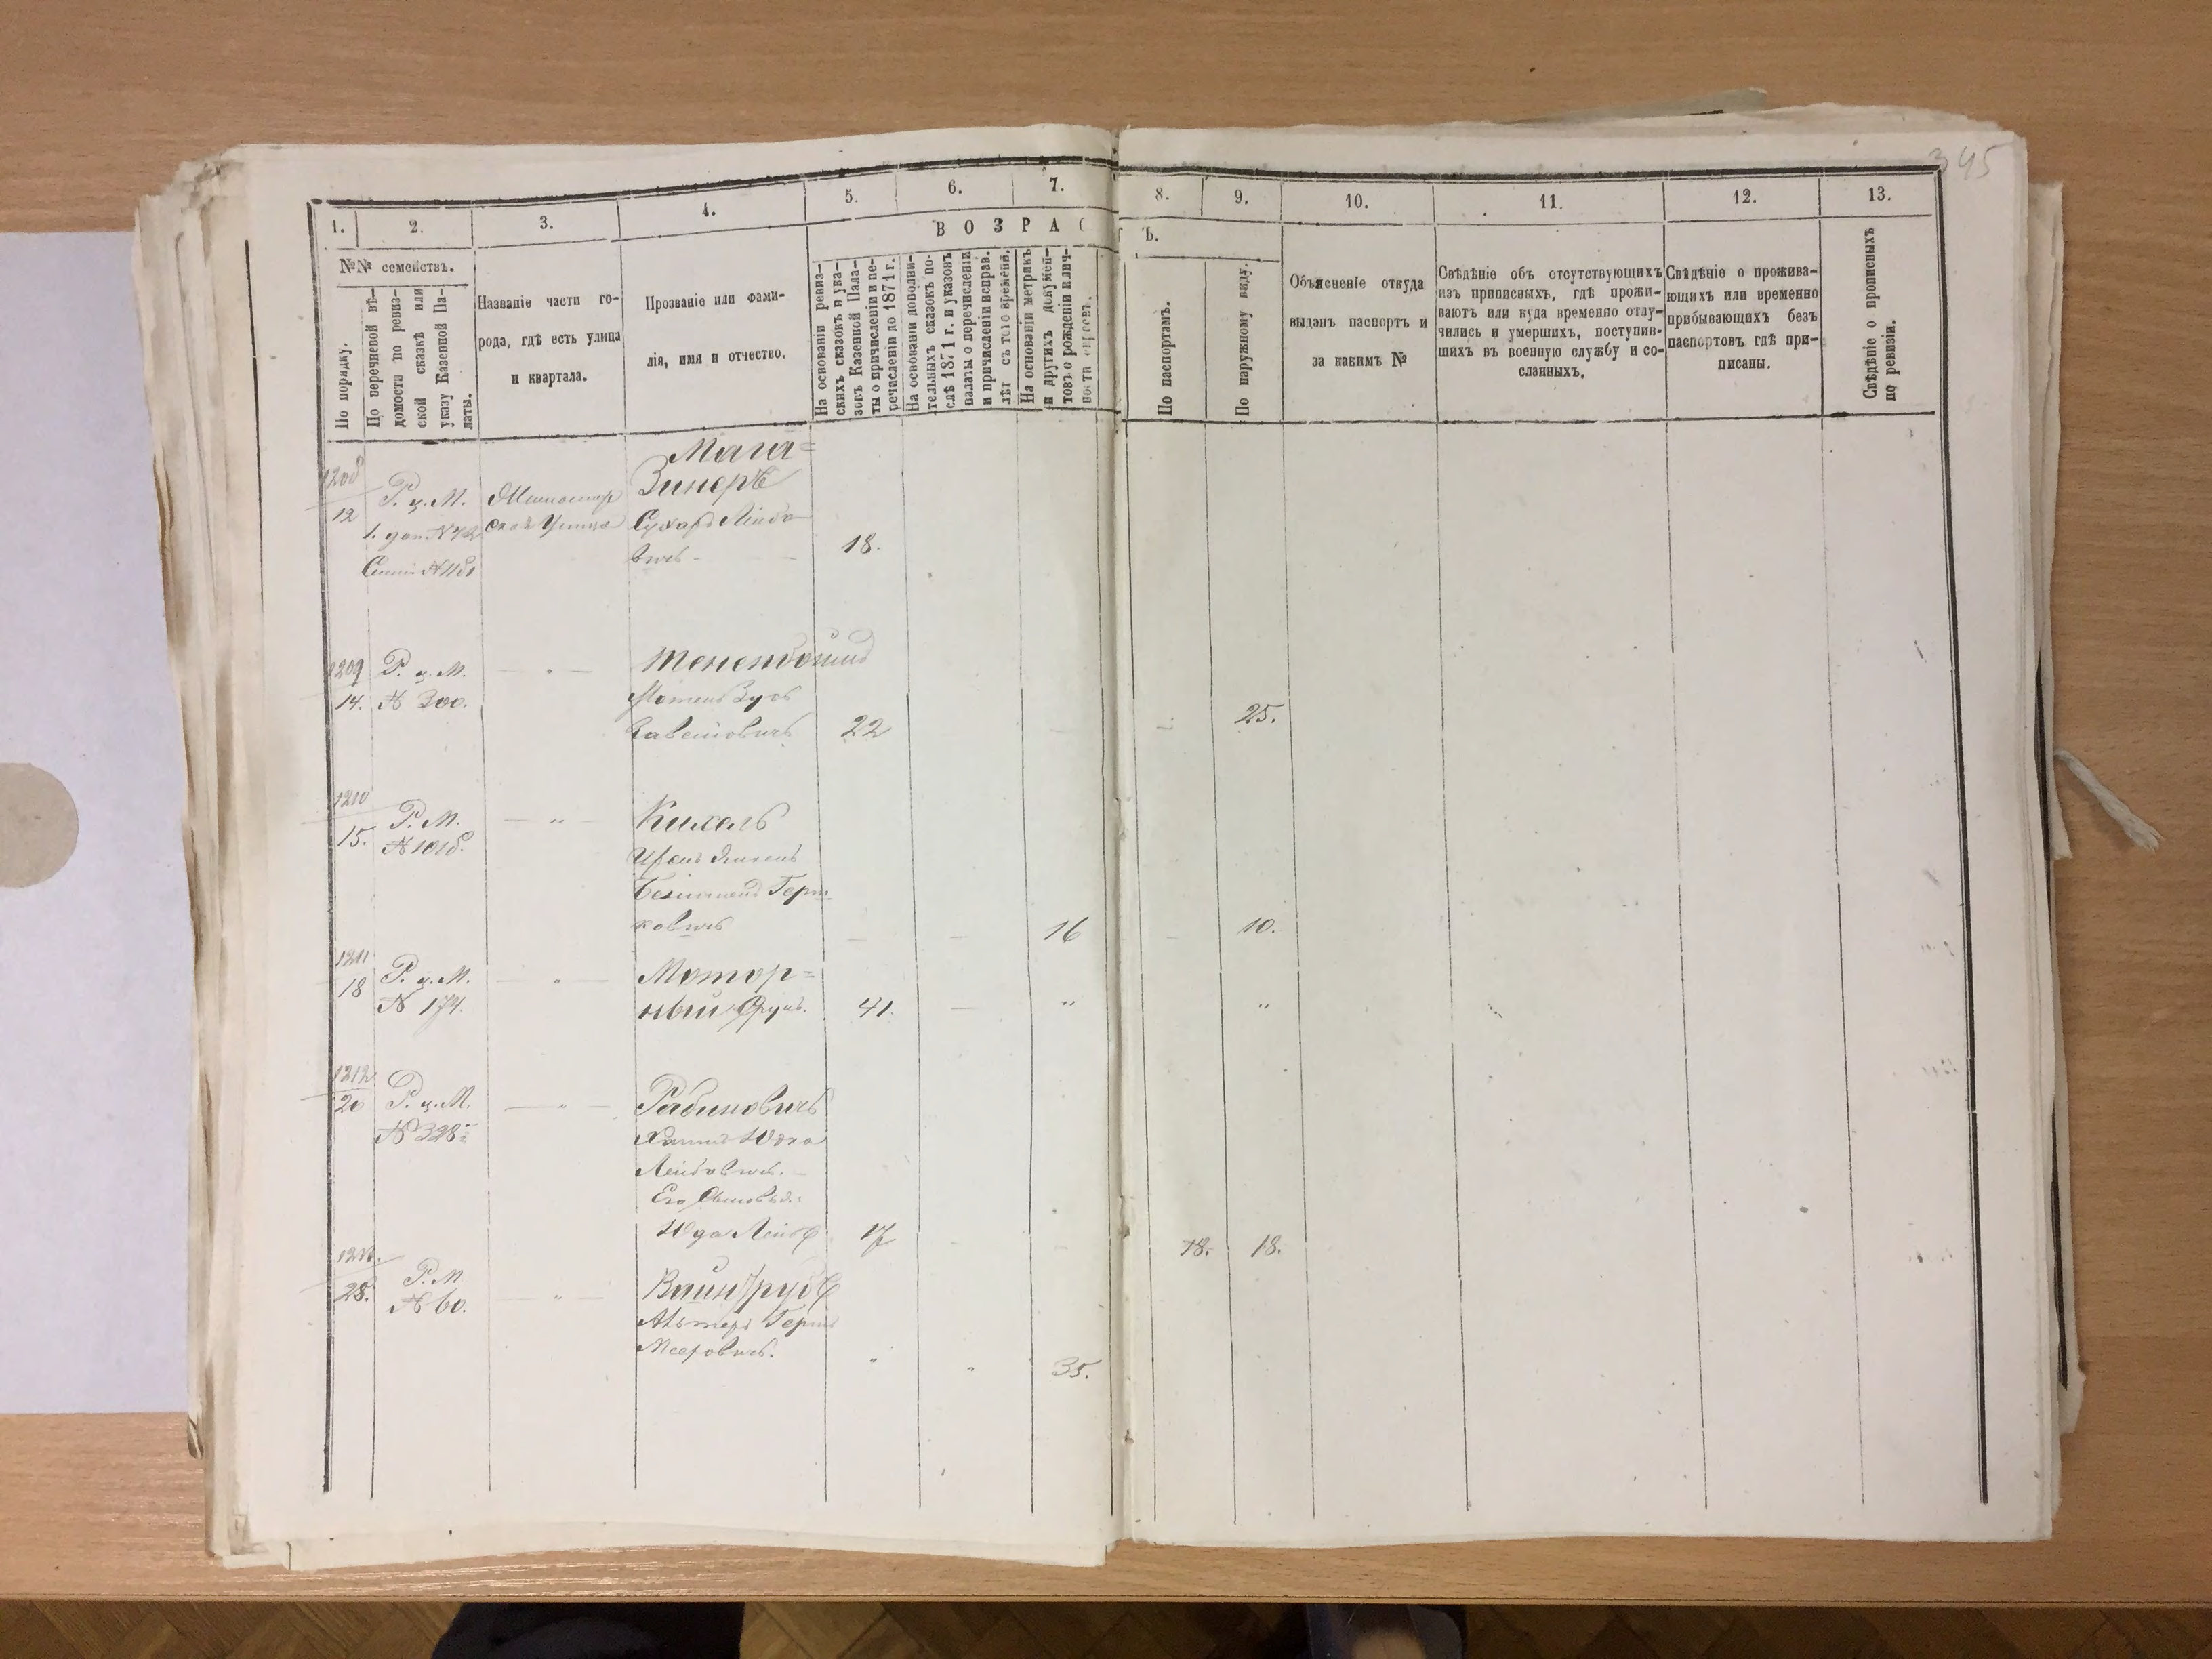 345
1.
2.
3.
4.
5.
6.
7.
8.
9.
10.
11.
12.
13.
ВОЗРАС
Ъ.
№№ семействъ.
По порядку.
По перечневой вѣ-
домости по ревиз-
ской сказкѣ или
указу Казенной Па-
латы.
Названіе части го-
рода, гдѣ есть улица
и квартала.
Прозваніе или фами-
лія, имя и отчество.
На основаніи ревиз-
скихъ сказокъ и ука-
зовъ Казенной Пала-
ты о причисленіи и пе-
речисленіи до 1871 г.
На основаніи дополни-
тельныхъ сказокъ по-
слѣ 1871 г. и указовъ
палаты о перечисленіи
и причисленіи исправ.
лѣт съ того времени.
На основаніи метрикъ
и другихъ докумен-
товъ о рожденіи и лич-
ности евреевъ.
По паспортамъ.
По наружному виду.
Объясненіе откуда
выданъ паспортъ и
за какимъ №
Свѣдѣніе объ отсутствующихъ
изъ приписныхъ, гдѣ прожи-
ваютъ или куда временно отлу-
чились и умершихъ, поступив-
шихъ въ военную службу и со-
сланныхъ.
Свѣдѣніе о прожива-
ющихъ или временно
прибывающихъ безъ
паспортовъ гдѣ при-
писаны.
Свѣдѣніе о прописныхъ
по ревизіи.
Мага=
1208
Зинеръ
12
Р. ц. М.
1. доп. №
Улица
вичъ
18.
1209
Р. ц. М.
14.
№ 300.
22
25.
1210
15.
Р. М.
Кихель
Герш-
ковичъ
16
10.
1211
18
Р. ц. М.
Мотор=
№ 174.
ный Срулъ.
41.
1212
20
Р. ц. М.
Рабиновичъ
№ 328
Хаимъ Юдка
Лейбовичъ.
Его сыновья:
Юда Лейбъ
17
18.
18.
28.
Р. М.
Вайнтрубъ
№ 60.
Альтеръ Гершъ
Мееровичъ.
35.